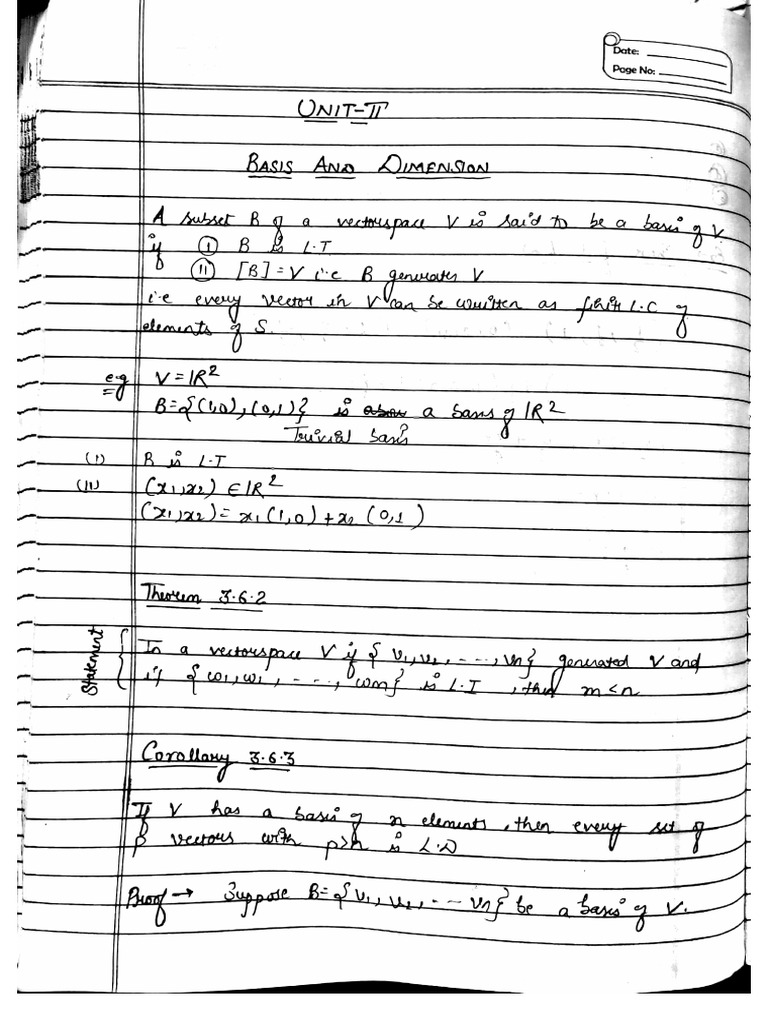 Date:
Page No:
UNIT-II
BASIS AND DIMENSION
A subset B of a vectorspace V is said to be a basis of V
if (I) B is L.I
(II) [B]=V i.e B generates V
i.e every vector in V can be written as finite L.C of
elements of S.
e.g V=IR²
B={(1,0),(0,1)} is a basis of IR²
Trivial basis
(I) B is L.I
(II) (x₁,x₂) ∈ IR²
(x₁,x₂)= x₁(1,0)+x₂(0,1)
Theorem 3.6.2
Statement
In a vectorspace V if { v₁,v₂, ----, vn} generated V and
if {w₁,w₁, ----, wm} is L.I , then m<n
Corollary 3.6.3
If V has a basis of n elements, then every set of
p vectors with p>n is L.D
Proof → Suppose B={v₁, v₂, --- vn} be a basis of V.